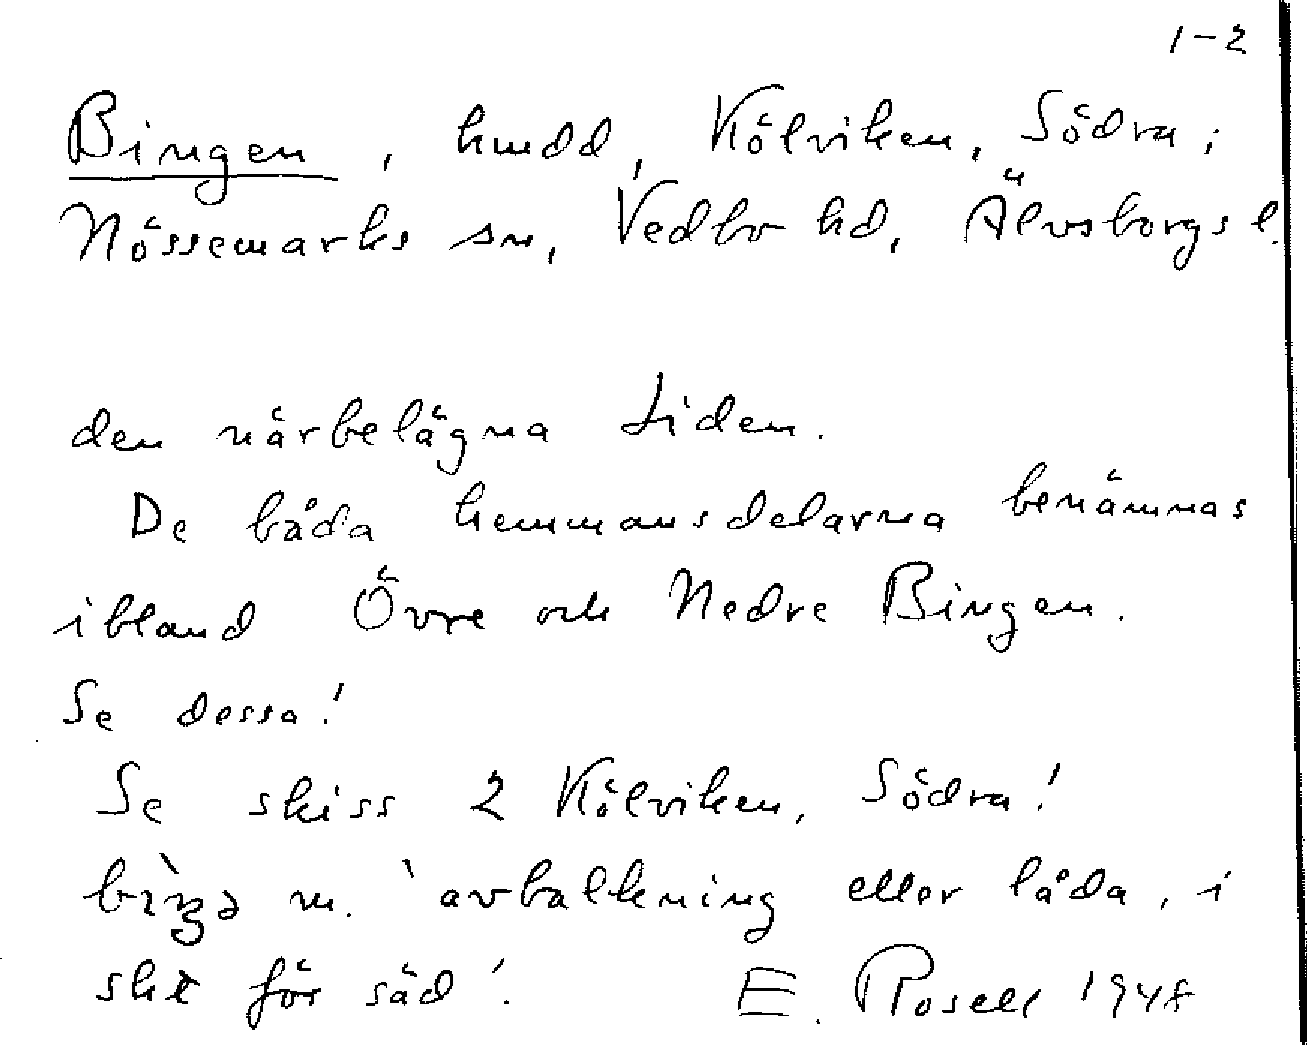 1-2
Bingen, hmdd, Kölviken, Södra;
Nössemarks sn, Vedbo hd, Älvsborgs l.
den närbelägna Liden.
De båda hemmansdelarna benämnas
ibland Övre och Nedre Bingen.
Se dessa!
Se skiss 2 Kölviken, Södra!
m. 'avbalkning eller låda, i
skt för säd'. E. Rosell 1948